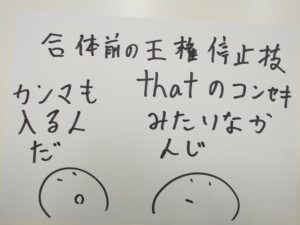 合体前の王権停止技
カンマも
入る人
だ
thatのコンセキ
みたりなか
んじ